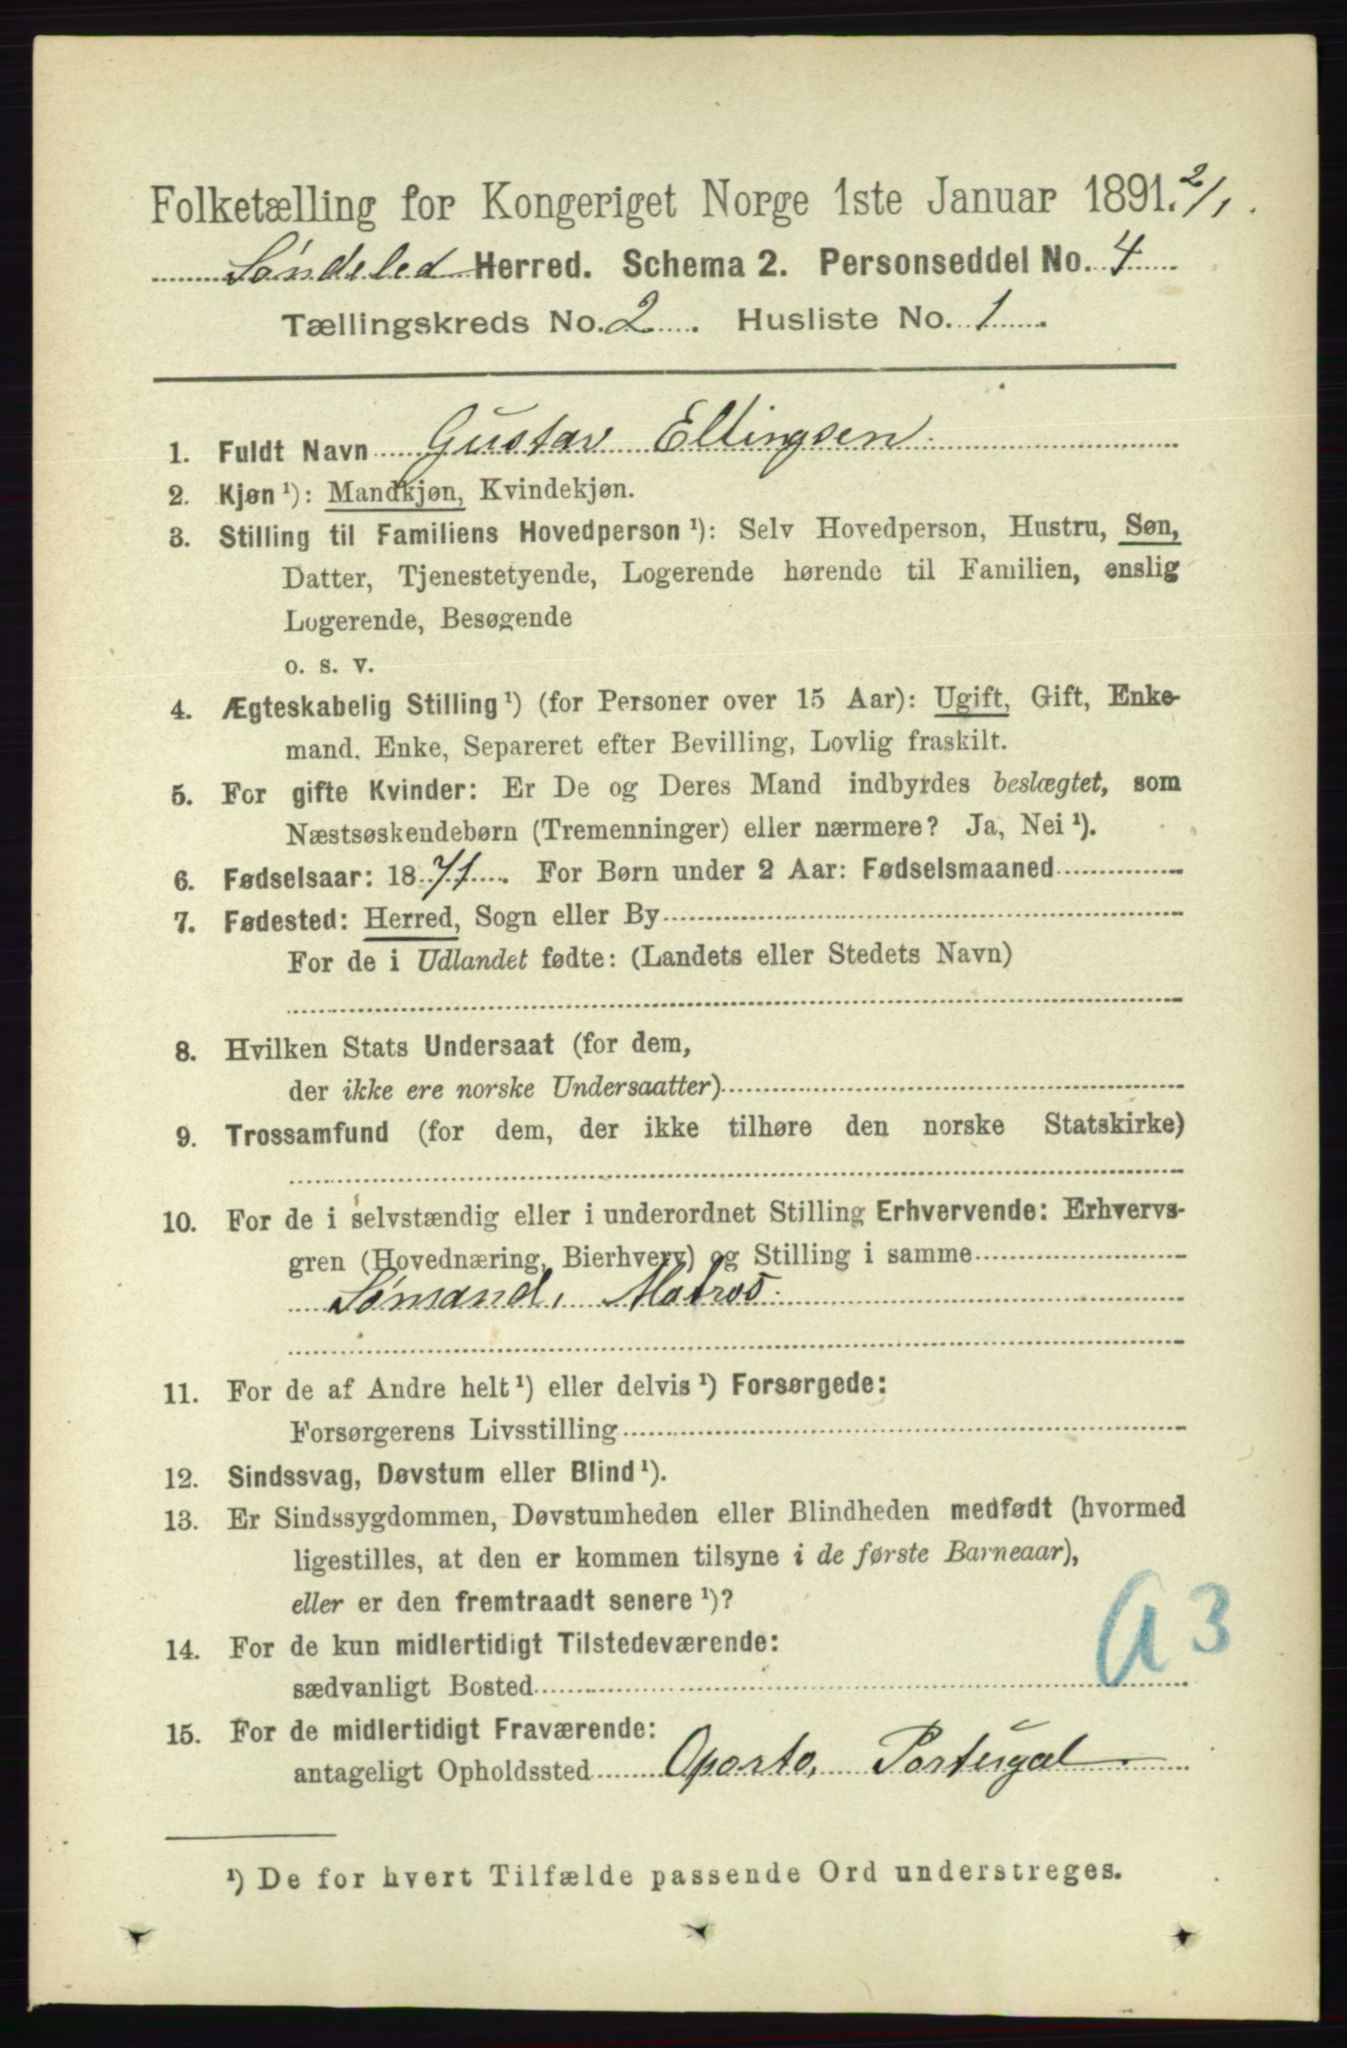 Folketælling for Kongeriget Norge 1ste Januar 1891. 2/1
Søndeled Herred. Schema 2. Personseddel No. 4
Tællingskreds No. 2. Husliste No. 1.
1. Fuldt Navn Gustav Ellingsen.
2. Kjøn ¹): Mandkjøn, Kvindekjøn.
3. Stilling til Familiens Hovedperson ¹): Selv Hovedperson, Hustru, Søn,
Datter, Tjenestetyende, Logerende hørende til Familien, enslig
Logerende, Besøgende
o. s. v.
4. Ægteskabelig Stilling ¹) (for Personer over 15 Aar): Ugift, Gift, Enke-
mand, Enke, Separeret efter Bevilling, Lovlig fraskilt.
5. For gifte Kvinder: Er De og Deres Mand indbyrdes beslægtet, som
Næstsøskendebørn (Tremenninger) eller nærmere? Ja, Nei ¹).
6. Fødselsaar: 1871. For Børn under 2 Aar: Fødselsmaaned
7. Fødested: Herred, Sogn eller By
For de i Udlandet fødte: (Landets eller Stedets Navn)
8. Hvilken Stats Undersaat (for dem,
der ikke ere norske Undersaatter)
9. Trossamfund (for dem, der ikke tilhøre den norske Statskirke)
10. For de i selvstændig eller i underordnet Stilling Erhvervende: Erhvervs-
gren (Hovednæring, Bierhverv) og Stilling i samme
Sømand, Matros.
11. For de af Andre helt ¹) eller delvis ¹) Forsørgede:
Forsørgerens Livsstilling
12. Sindssvag, Døvstum eller Blind ¹).
13. Er Sindssygdommen, Døvstumheden eller Blindheden medfødt (hvormed
ligestilles, at den er kommen tilsyne i de første Barneaar),
eller er den fremtraadt senere ¹)?
a 3
14. For de kun midlertidigt Tilstedeværende:
sædvanligt Bosted
15. For de midlertidigt Fraværende:
antageligt Opholdssted Oporto, Portugal
¹) De for hvert Tilfælde passende Ord understreges.